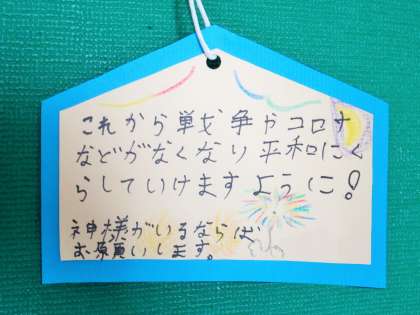 これから戦争やコロナ
などがなくなり平和にく
らしていけますように！
神様がいるならば、
お願いします。